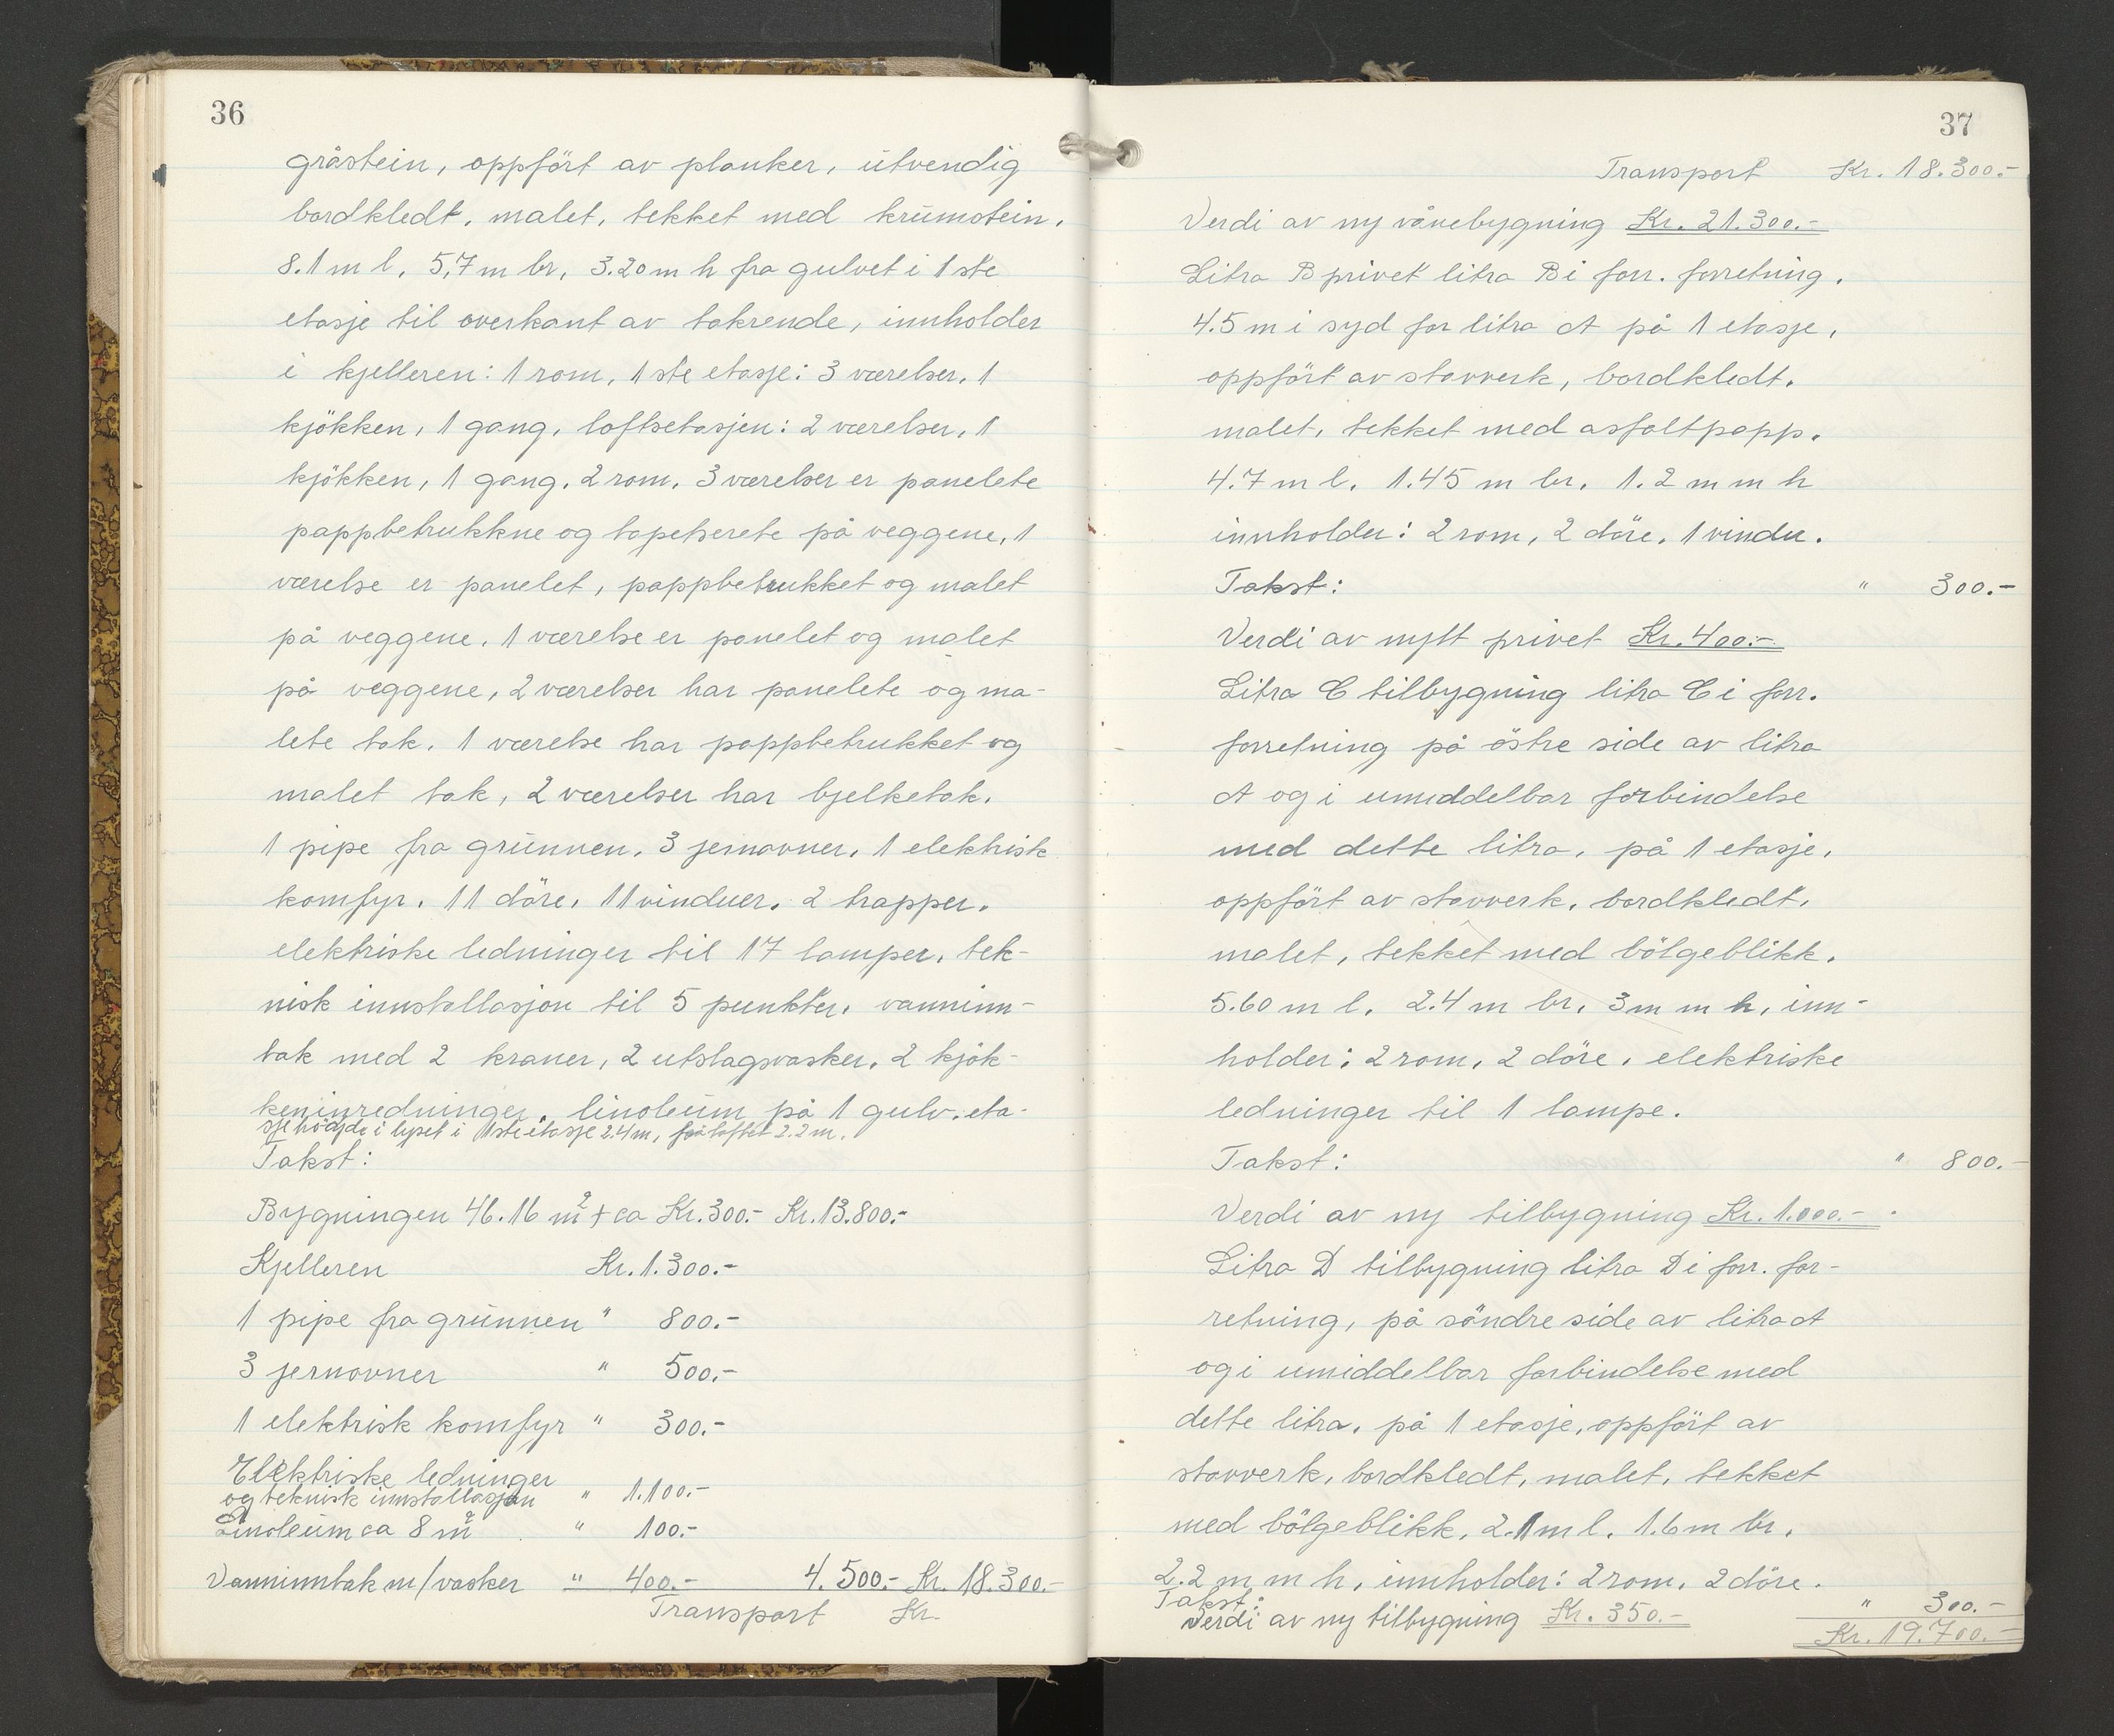 36
gråstein, oppfört av planker, utvendig
bordkledt, malet, tekket med krumstein,
8.1 m l, 5,7 m br, 3.20 m h fra gulvet i 1 ste
etasje til overkant av takrende, innholder
i kjelleren: 1 rom, 1 ste etasje: 3 værelser, 1
kjökken, 1 gang, loftsetasjen: 2 værelser, 1
kjökken, 1 gang, 2 rom, 3 værelser er panelete
pappbetrukkne og tapetserete på veggene, 1
værelse er panelet, pappbetrukket og malet
på veggene, 1 værelse er panelet og malet
på veggene, 2 værelser har panelete og ma-
lete tak, 1 værelse har pappbetrukket og
malet tak, 2 værelser har bjelketak.
1 pipe fra grunnen, 3 jernovner, 1 elektrisk
komfyr, 11 döre, 11 vinduer, 2 trapper,
elektriske ledninger til 17 lamper, tek-
nisk innstallasjon til 5 punkter, vanninn-
tak med 2 kraner, 2 utslagsvasker, 2 kjök-
keninredninger, linoleum på 1 gulv, eta-
sjehöyde i lyset i 1ste etasje 2.4 m, på loftet 2.2 m.
Takst:
Bygningen 46.16 m² + ca Kr. 300.- Kr. 13.800.-
Kjelleren Kr. 1.300.-
1 pipe fra grunnen " 800.-
3 jernovner " 500.-
1 elektrisk komfyr " 300.-
Elektriske ledninger
og teknisk innstallasjon " 1.100.-
Linoleum ca 8 m² " 100.-
Vanninntak m/vasker " 400.- 4.500.- Kr. 18.300.-
Transport Kr.
37
Transport Kr. 18.300.-
Verdi av ny vånebygning Kr. 21.300.-
Litra B privet litra B i forr. forretning,
4.5 m i syd for litra A på 1 etasje,
oppfört av stavverk, bordkledt,
malet, tekket med asfaltpapp,
4.7 m l, 1.45 m br, 1.2 m m h
innholder: 2 rom, 2 döre, 1 vindu.
Takst: " 300.-
Verdi av nytt privet Kr. 400.-
Litra C tilbygning litra C i forr.
forretning på östre side av litra
A og i umiddelbar forbindelse
med dette litra, på 1 etasje,
oppfört av stavverk, bordkledt,
malet, tekket med bölgeblikk,
5.60 m l, 2.4 m br, 3 m m h, inn-
holder: 2 rom, 2 döre, elektriske
ledninger til 1 lampe.
Takst: " 800.-
Verdi av ny tilbygning Kr. 1.000.-
Litra D tilbygning litra D i forr. for-
retning, på söndre side av litra A
og i umiddelbar forbindelse med
dette litra, på 1 etasje, oppfört av
stavverk, bordkledt, malet, tekket
med bölgeblikk, 2.1 m l, 1.6 m br,
2.2 m m h, innholder: 2 rom, 2 döre.
Takst: " 300.-
Verdi av ny tilbygning Kr. 350.-
Kr. 19.700.-